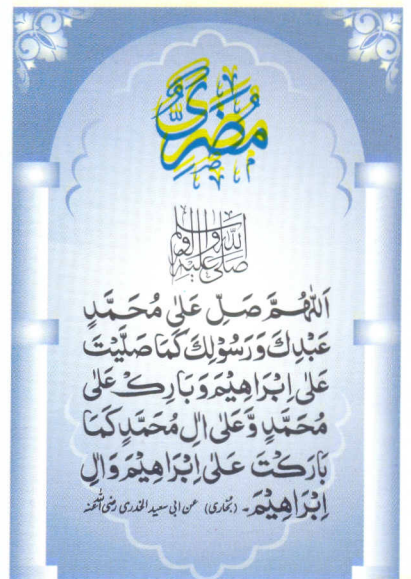 مُضَرِيٌّ
صَلَّى اللهُ عَلَيْهِ وَاٰلِهٖ وَسَلَّم
اَللّٰهُمَّ صَلِّ عَلٰى مُحَمَّدٍ
عَبْدِكَ وَرَسُوْلِكَ كَمَا صَلَّيْتَ
عَلٰى اِبْرَاهِيْمَ وَبَارِكْ عَلٰى
مُحَمَّدٍ وَّعَلٰى اٰلِ مُحَمَّدٍ كَمَا
بَارَكْتَ عَلٰى اِبْرَاهِيْمَ وَاٰلِ
اِبْرَاهِيْمَ۔ (بخاری) عن ابی سعید الخدری رضی اللہ عنہ